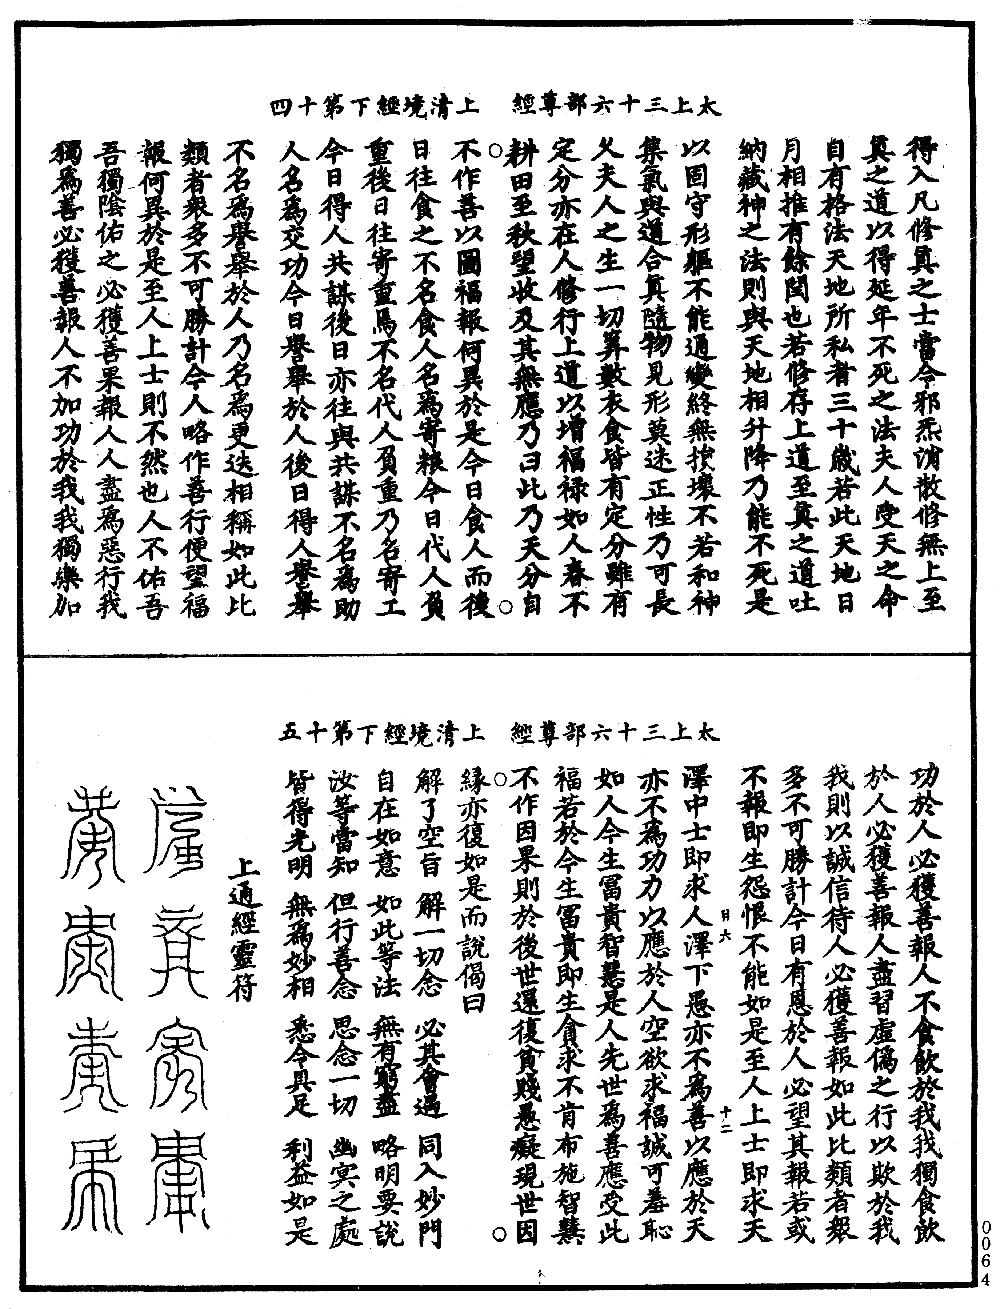 太上三十六部尊經　上清境經下第十四
得入凡修真之士當令邪炁消散修無上至
真之道以得延年不死之法夫人受天之命
自有格法天地所私者三十歲若此天地日
月相推有餘閏也若修存上道至真之道吐
納藏神之法則與天地相升降乃能不死是
以固守形軀不能通變終無按壞不若和神
集氣與道合真隨物見形莫迷正性乃可長
久夫人之生一切算數衣食皆有定分雖有
定分亦在人修行上道以增福祿如人春不
耕田至秋望收及其無應乃曰此乃天分自
不作善以圖福報何異於是今日食人而後
日往食之不名食人名為寄糧今日代人負
重後日往寄重焉不名代人負重乃名寄工
今日得人共謀後日亦往與共謀不名為助
人名為交功今日譽舉於人後日得人譽舉
不名為譽舉於人乃名為更迭相稱如此比
類者衆多不可勝計今人略作善行便望福
報何異於是至人上士則不然也人不佑吾
吾獨陰佑之必獲善果報人人盡為惡行我
獨為善必獲善報人不加功於我我獨樂加
太上三十六部尊經　上清境經下第十五
功於人必獲善報人不食飲於我我獨食飲
於人必獲善報人盡習虛偽之行以欺於我
我則以誠信待人必獲善報如此比類者衆
多不可勝計今日有恩於人必望其報若或
不報即生怨恨不能如是至人上士即求天
目六　十二
澤中士即求人澤下愚亦不為善以應於天
亦不為功力以應於人空欲求福誠可羞恥
如人今生冨貴智慧是人先世為善應受此
福若於今生冨貴即生貪求不肯布施智慧
不作因果則於後世還復貧賤愚癡現世因
緣亦復如是而說偈曰
解了空旨　解一切念　必其會遇　同入妙門
自在如意　如此等法　無有窮盡　略明要說
汝等當知　但行善念　思念一切　幽冥之處
皆得光明　無為妙相　悉令具足　利益如是
上通經靈符
0064